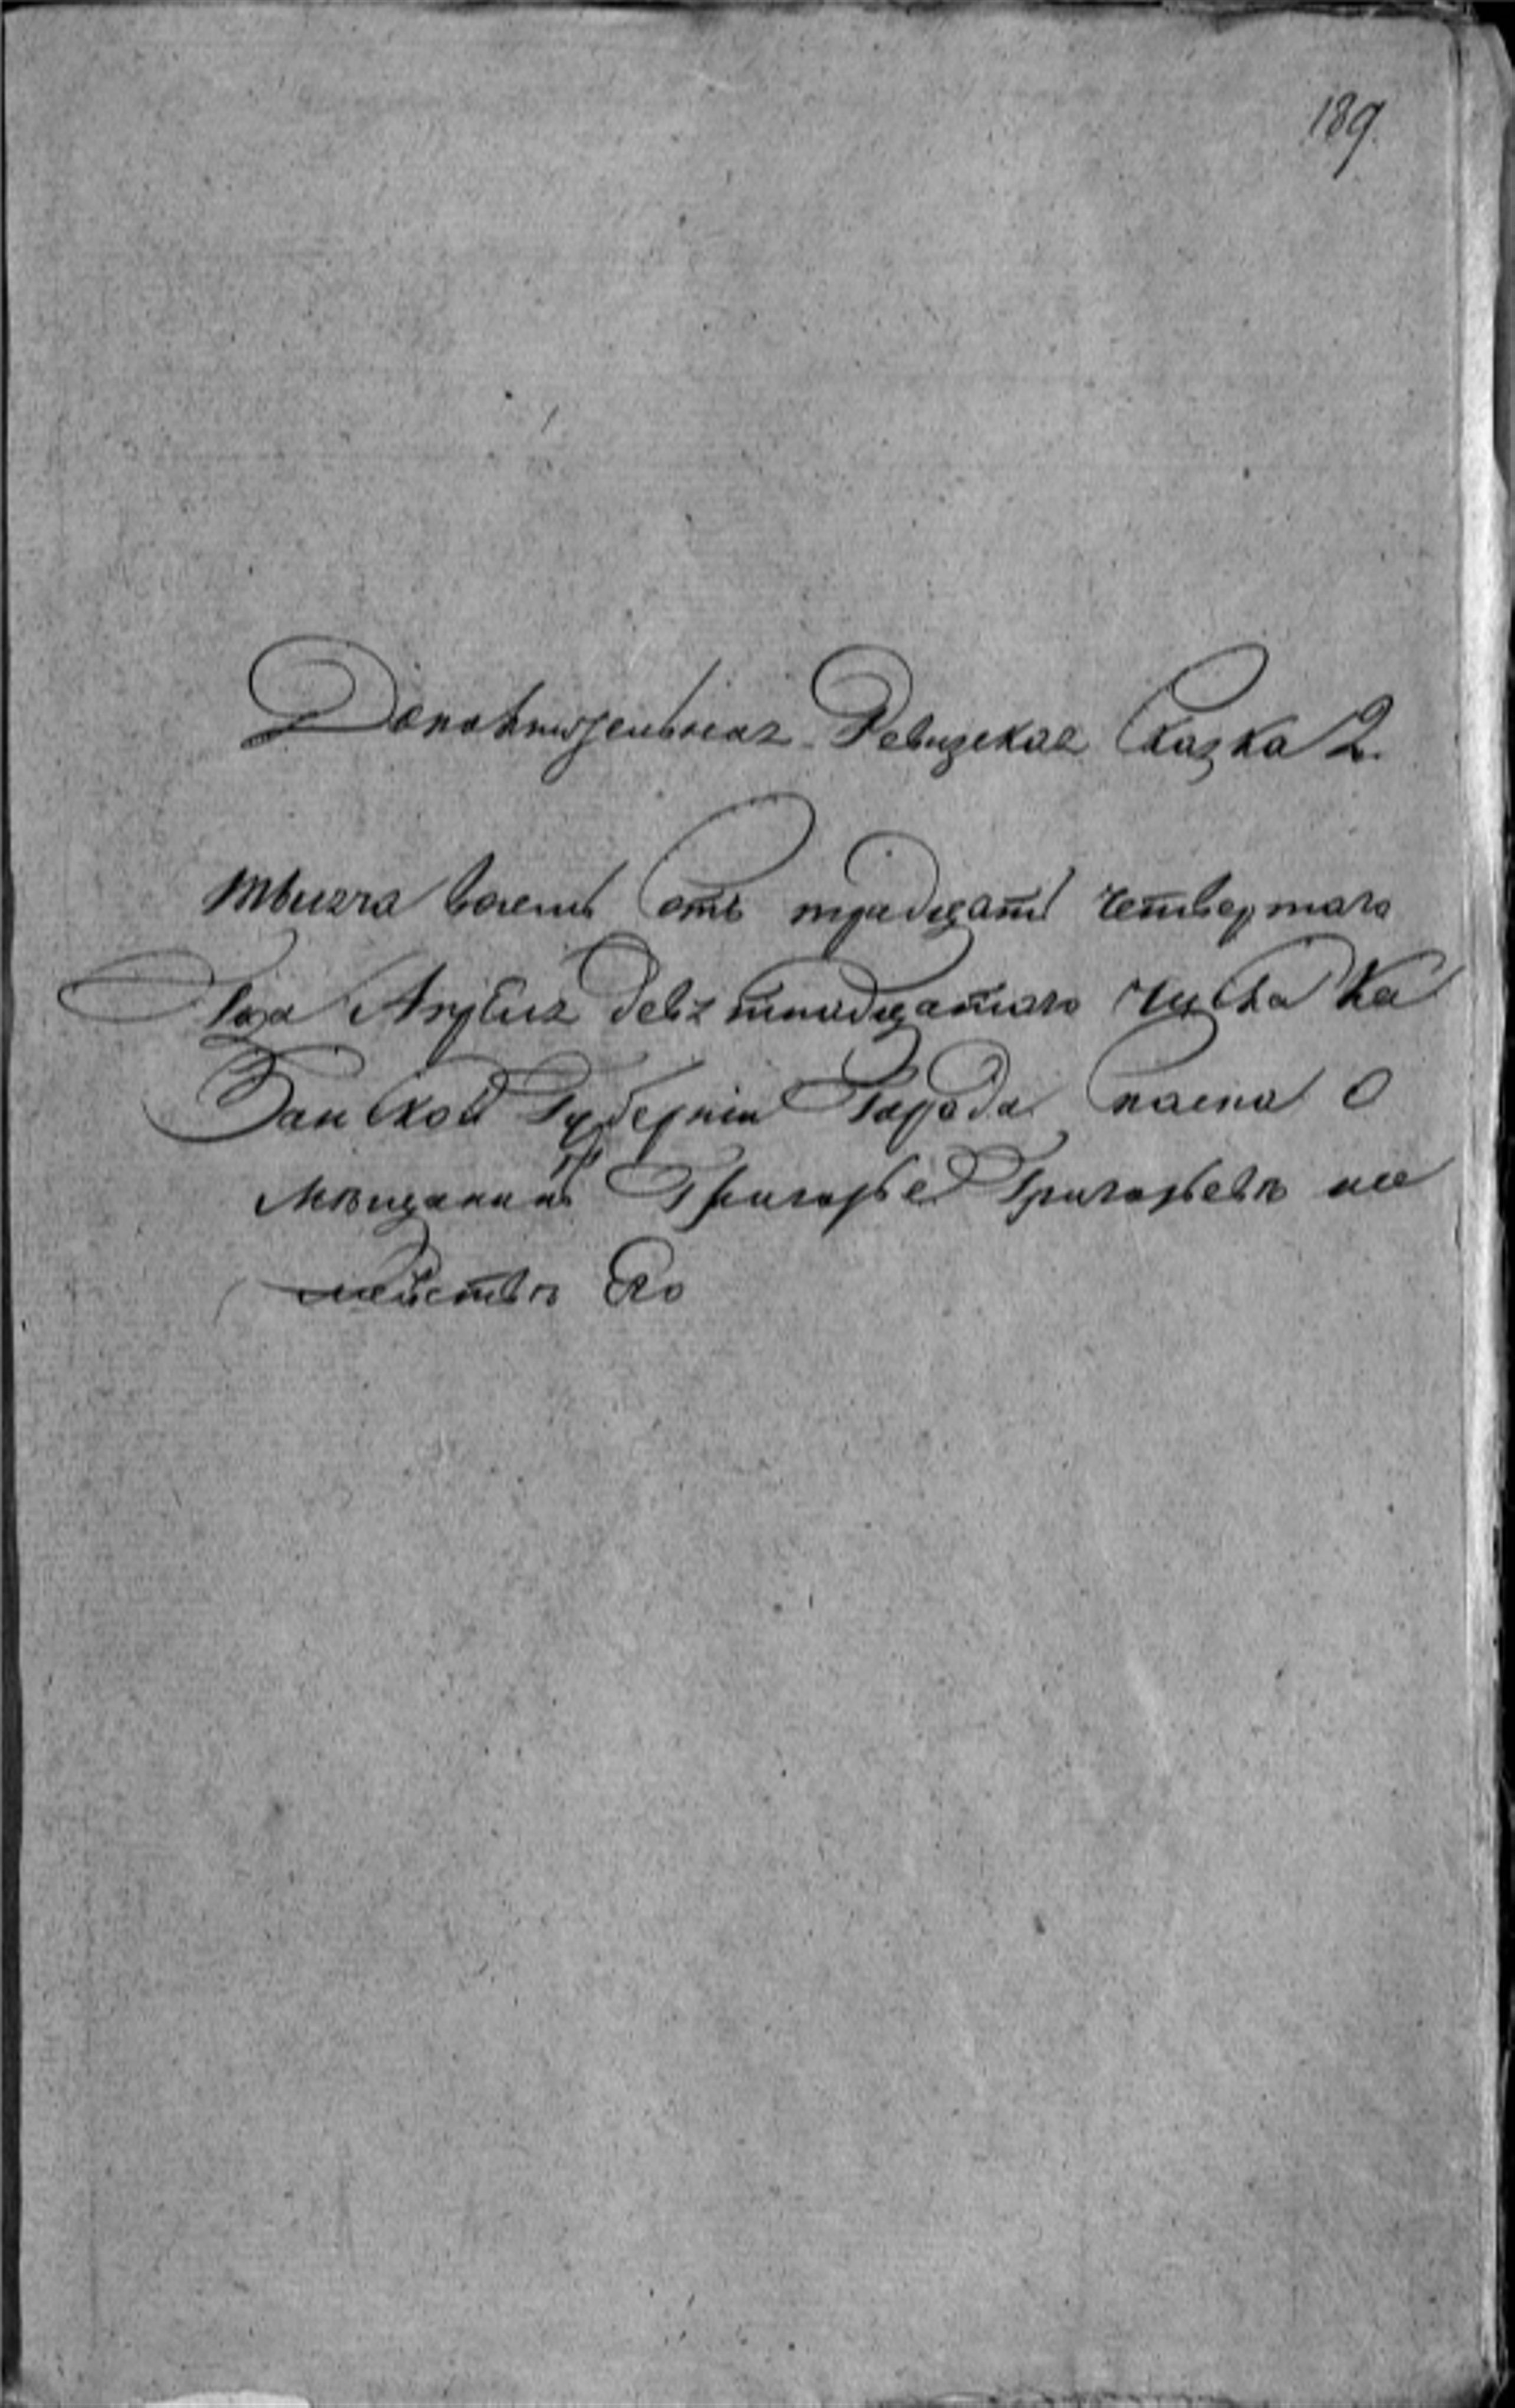 189.
Дополнительная Ревизская Сказка 2.
тысяча восемь сотъ тридцать четвертаго
Года Апреля девятнадцатаго числа Ка
Занской Губерніи Города Спаска О
мещанине Григорье Григорьеве и се
мействе Его